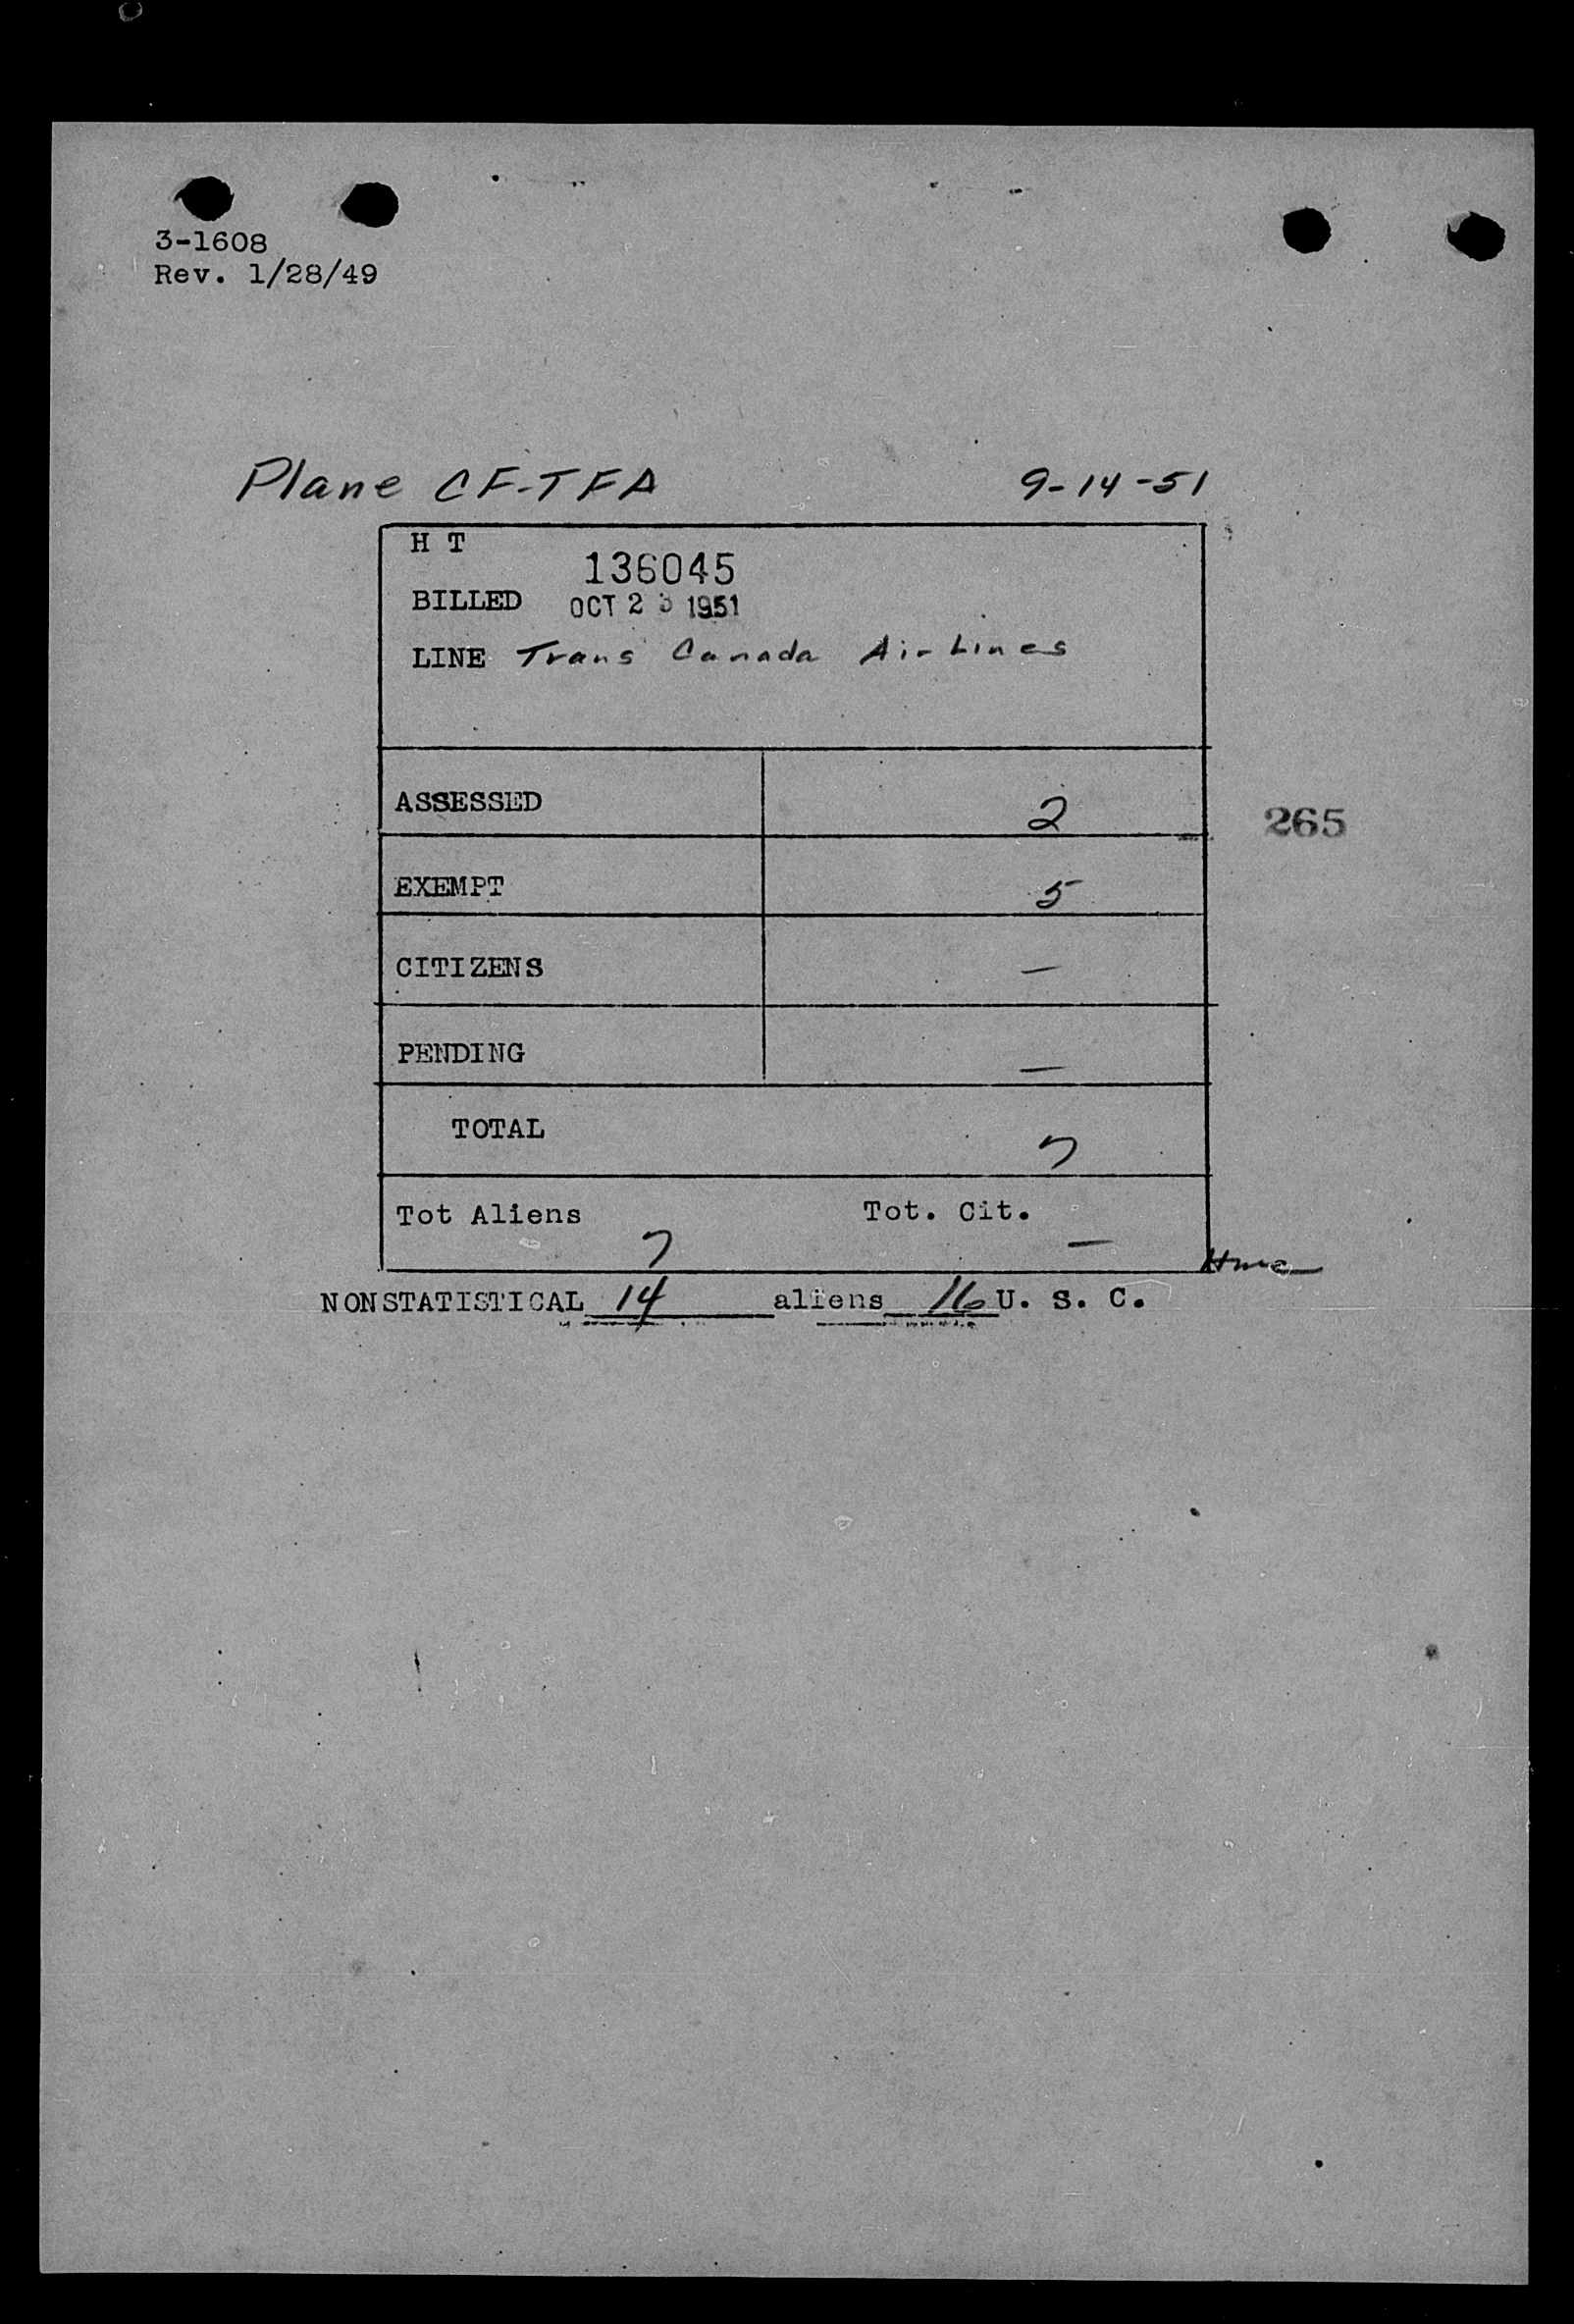 3-1608
Rev. 1/28/49
Plane CF-TFA 9-14-51
H T
136045
BILLED OCT 23 1951
LINE Trans Canada Air Lines
ASSESSED 2
265
EXEMPT 5
CITIZENS —
PENDING —
TOTAL 7
Tot Aliens 7 Tot. Cit. —
NONSTATISTICAL 14 aliens 16 U. S. C.